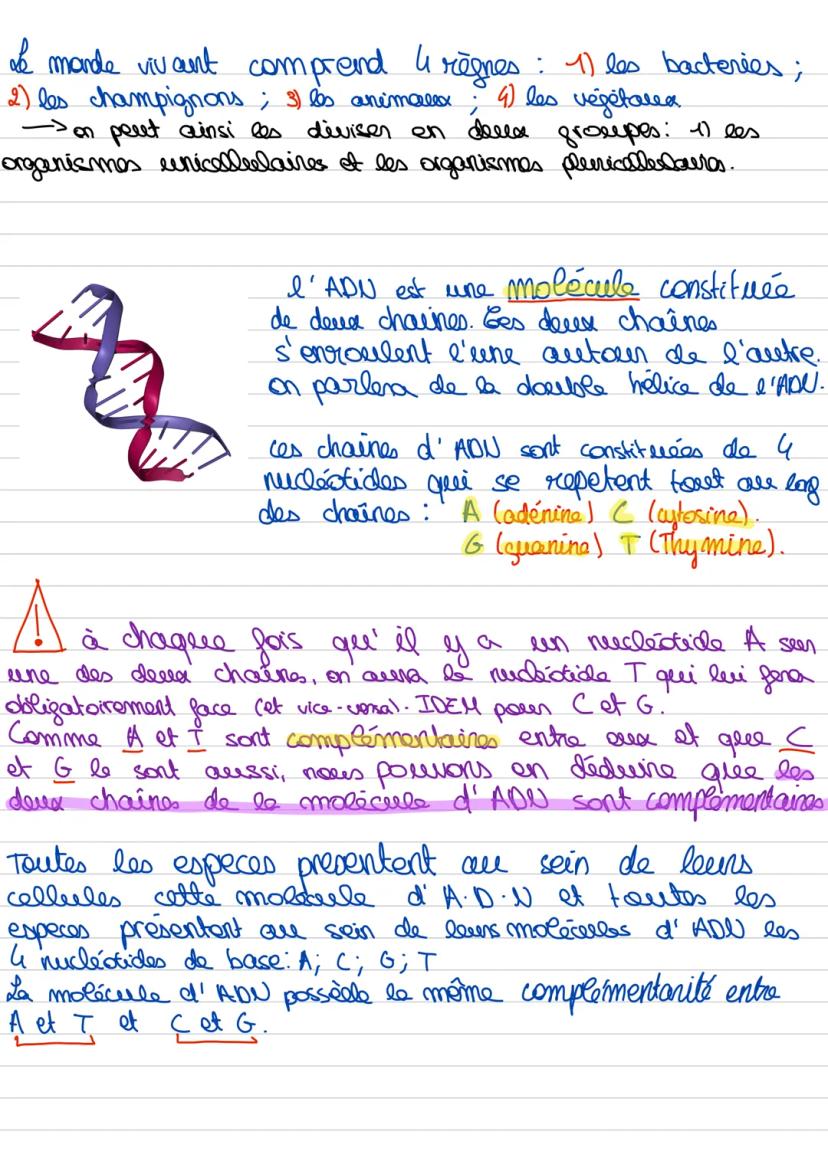 Le monde vivant comprend 4 règnes : 1) les bacteries ;
2) les champignons ; 3) les animaux ; 4) les végétaux
—> on peut ainsi les diviser en deux groupes: 1) les
organismes unicellulaires et les organismes pluricellulaires.
l'ADN est une molécule constituée
de deux chaines. Ces deux chaînes
s'enroulent l'une autour de l'autre.
on parlera de la double hélice de l'ADN.
ces chaines d'ADN sont constituées de 4
nucléotides qui se repetent tout au long
des chaînes : A (adénine) C (cytosine).
G (guanine) T (Thymine).
! à chaque fois qu'il y a un nucléotide A sur
une des deux chaînes, on aura le nucléotide T qui lui fera
obligatoirement face (et vice-versa). IDEM pour C et G.
Comme A et T sont complémentaires entre eux et que C
et G le sont aussi, nous pouvons en déduire que les
deux chaînes de la molécule d'ADN sont complémentaires
Toutes les especes presentent au sein de leurs
cellules cette molécule d'A.D.N et toutes les
especes présentent au sein de leurs molécules d'ADN les
4 nucléotides de base: A; C; G; T
La molécule d'ADN possède la même complémentarité entre
A et T et C et G.